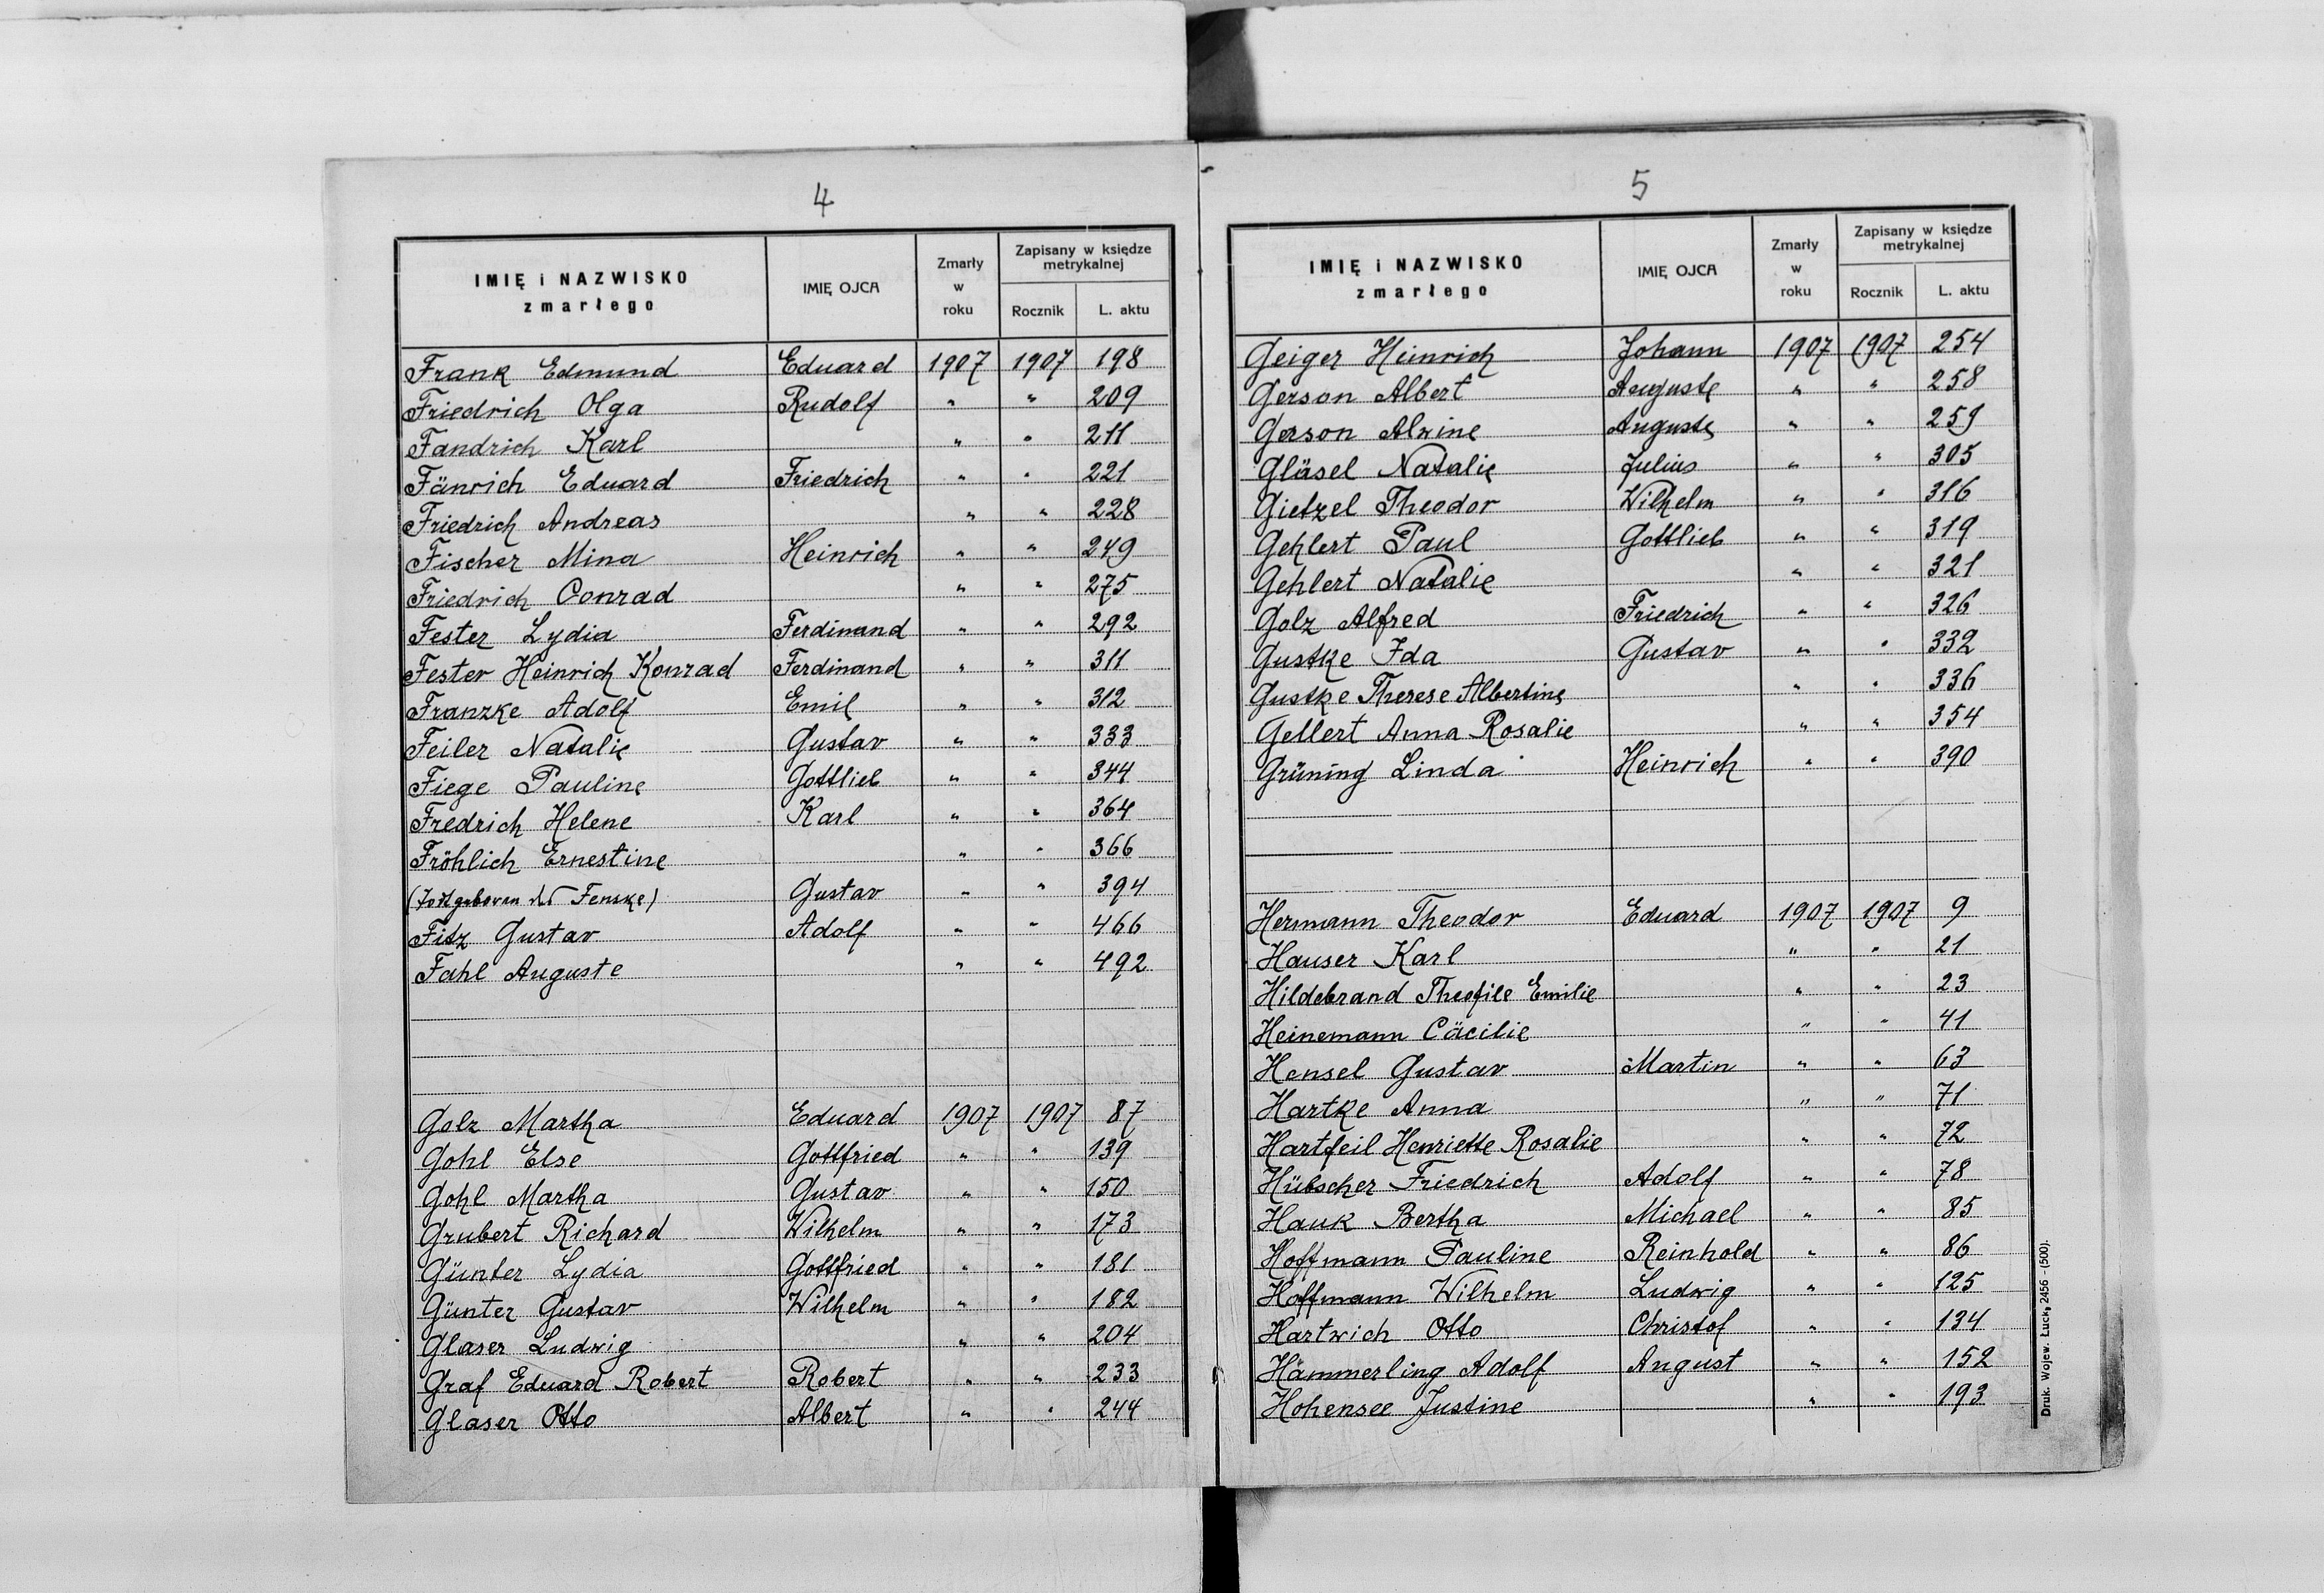 4
IMIĘ i NAZWISKO zmarłego IMIĘ OJCA Zmarły w roku Zapisany w księdze metrykalnej Rocznik L. aktu
Frank Edmund Eduard 1907 1907 198
Friedrich Olga Rudolf " " 209
Fandrich Karl " " 211
Fänrich Eduard Friedrich " " 221
Friedrich Andreas " " 228
Fischer Mina Heinrich " " 249
Friedrich Conrad " " 275
Fester Lydia Ferdinand " " 292
Fester Heinrich Konrad Ferdinand " " 311
Franzke Adolf Emil " " 312
Feiler Natalie Gustav " " 333
Fiege Pauline Gottlieb " " 344
Fredrich Helene Karl " " 364
Fröhlich Ernestine " " 366
(Todtgeboren des Fenske) Gustav " " 394
Fitz Gustav Adolf " " 466
Fahl Auguste " " 492
Golz Martha Eduard 1907 1907 87
Gohl Else Gottfried " " 139
Gohl Martha Gustav " " 150
Grubert Richard Wilhelm " " 173
Günter Lydia Gottfried " " 181
Günter Gustav Wilhelm " " 182
Glaser Ludwig " " 204
Graf Eduard Robert Robert " " 233
Glaser Otto Albert " " 244
5
IMIĘ i NAZWISKO zmarłego IMIĘ OJCA Zmarły w roku Zapisany w księdze metrykalnej Rocznik L. aktu
Geiger Heinrich Johann 1907 1907 254
Gerson Albert Auguste " " 258
Gerson Alwine Auguste " " 259
Gläsel Natalie Julius " " 305
Gietzel Theodor Wilhelm " " 316
Gehlert Paul Gottlieb " " 319
Gehlert Natalie " " 321
Golz Alfred Friedrich " " 326
Gustke Ida Gustav " " 332
Gustke Therese Albertine " " 336
Gellert Anna Rosalie " " 354
Grüning Linda Heinrich " " 390
Hermann Theodor Eduard 1907 1907 9
Hauser Karl " " 21
Hildebrand Theofile Emilie " " 23
Heinemann Cäcilie " " 41
Hensel Gustav Martin " " 63
Hartke Anna " " 71
Hartfeil Henriette Rosalie " " 72
Hübscher Friedrich Adolf " " 78
Hauk Bertha Michael " " 85
Hoffmann Pauline Reinhold " " 86
Hoffmann Wilhelm Ludwig " " 125
Hartwich Otto Christof " " 134
Hämmerling Adolf August " " 152
Hohensee Justine " " 193
Druk. Wojew. Łuck, 2456 - (500).